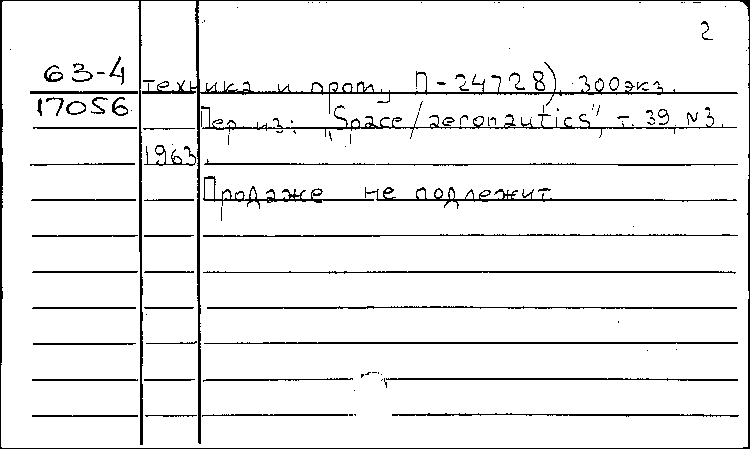 2
63-4 техника и пром., П-24728). 300 экз.
17056 Пер из: „Space/aeronautics", т. 39, №3.
1963.
Продаже не подлежит.